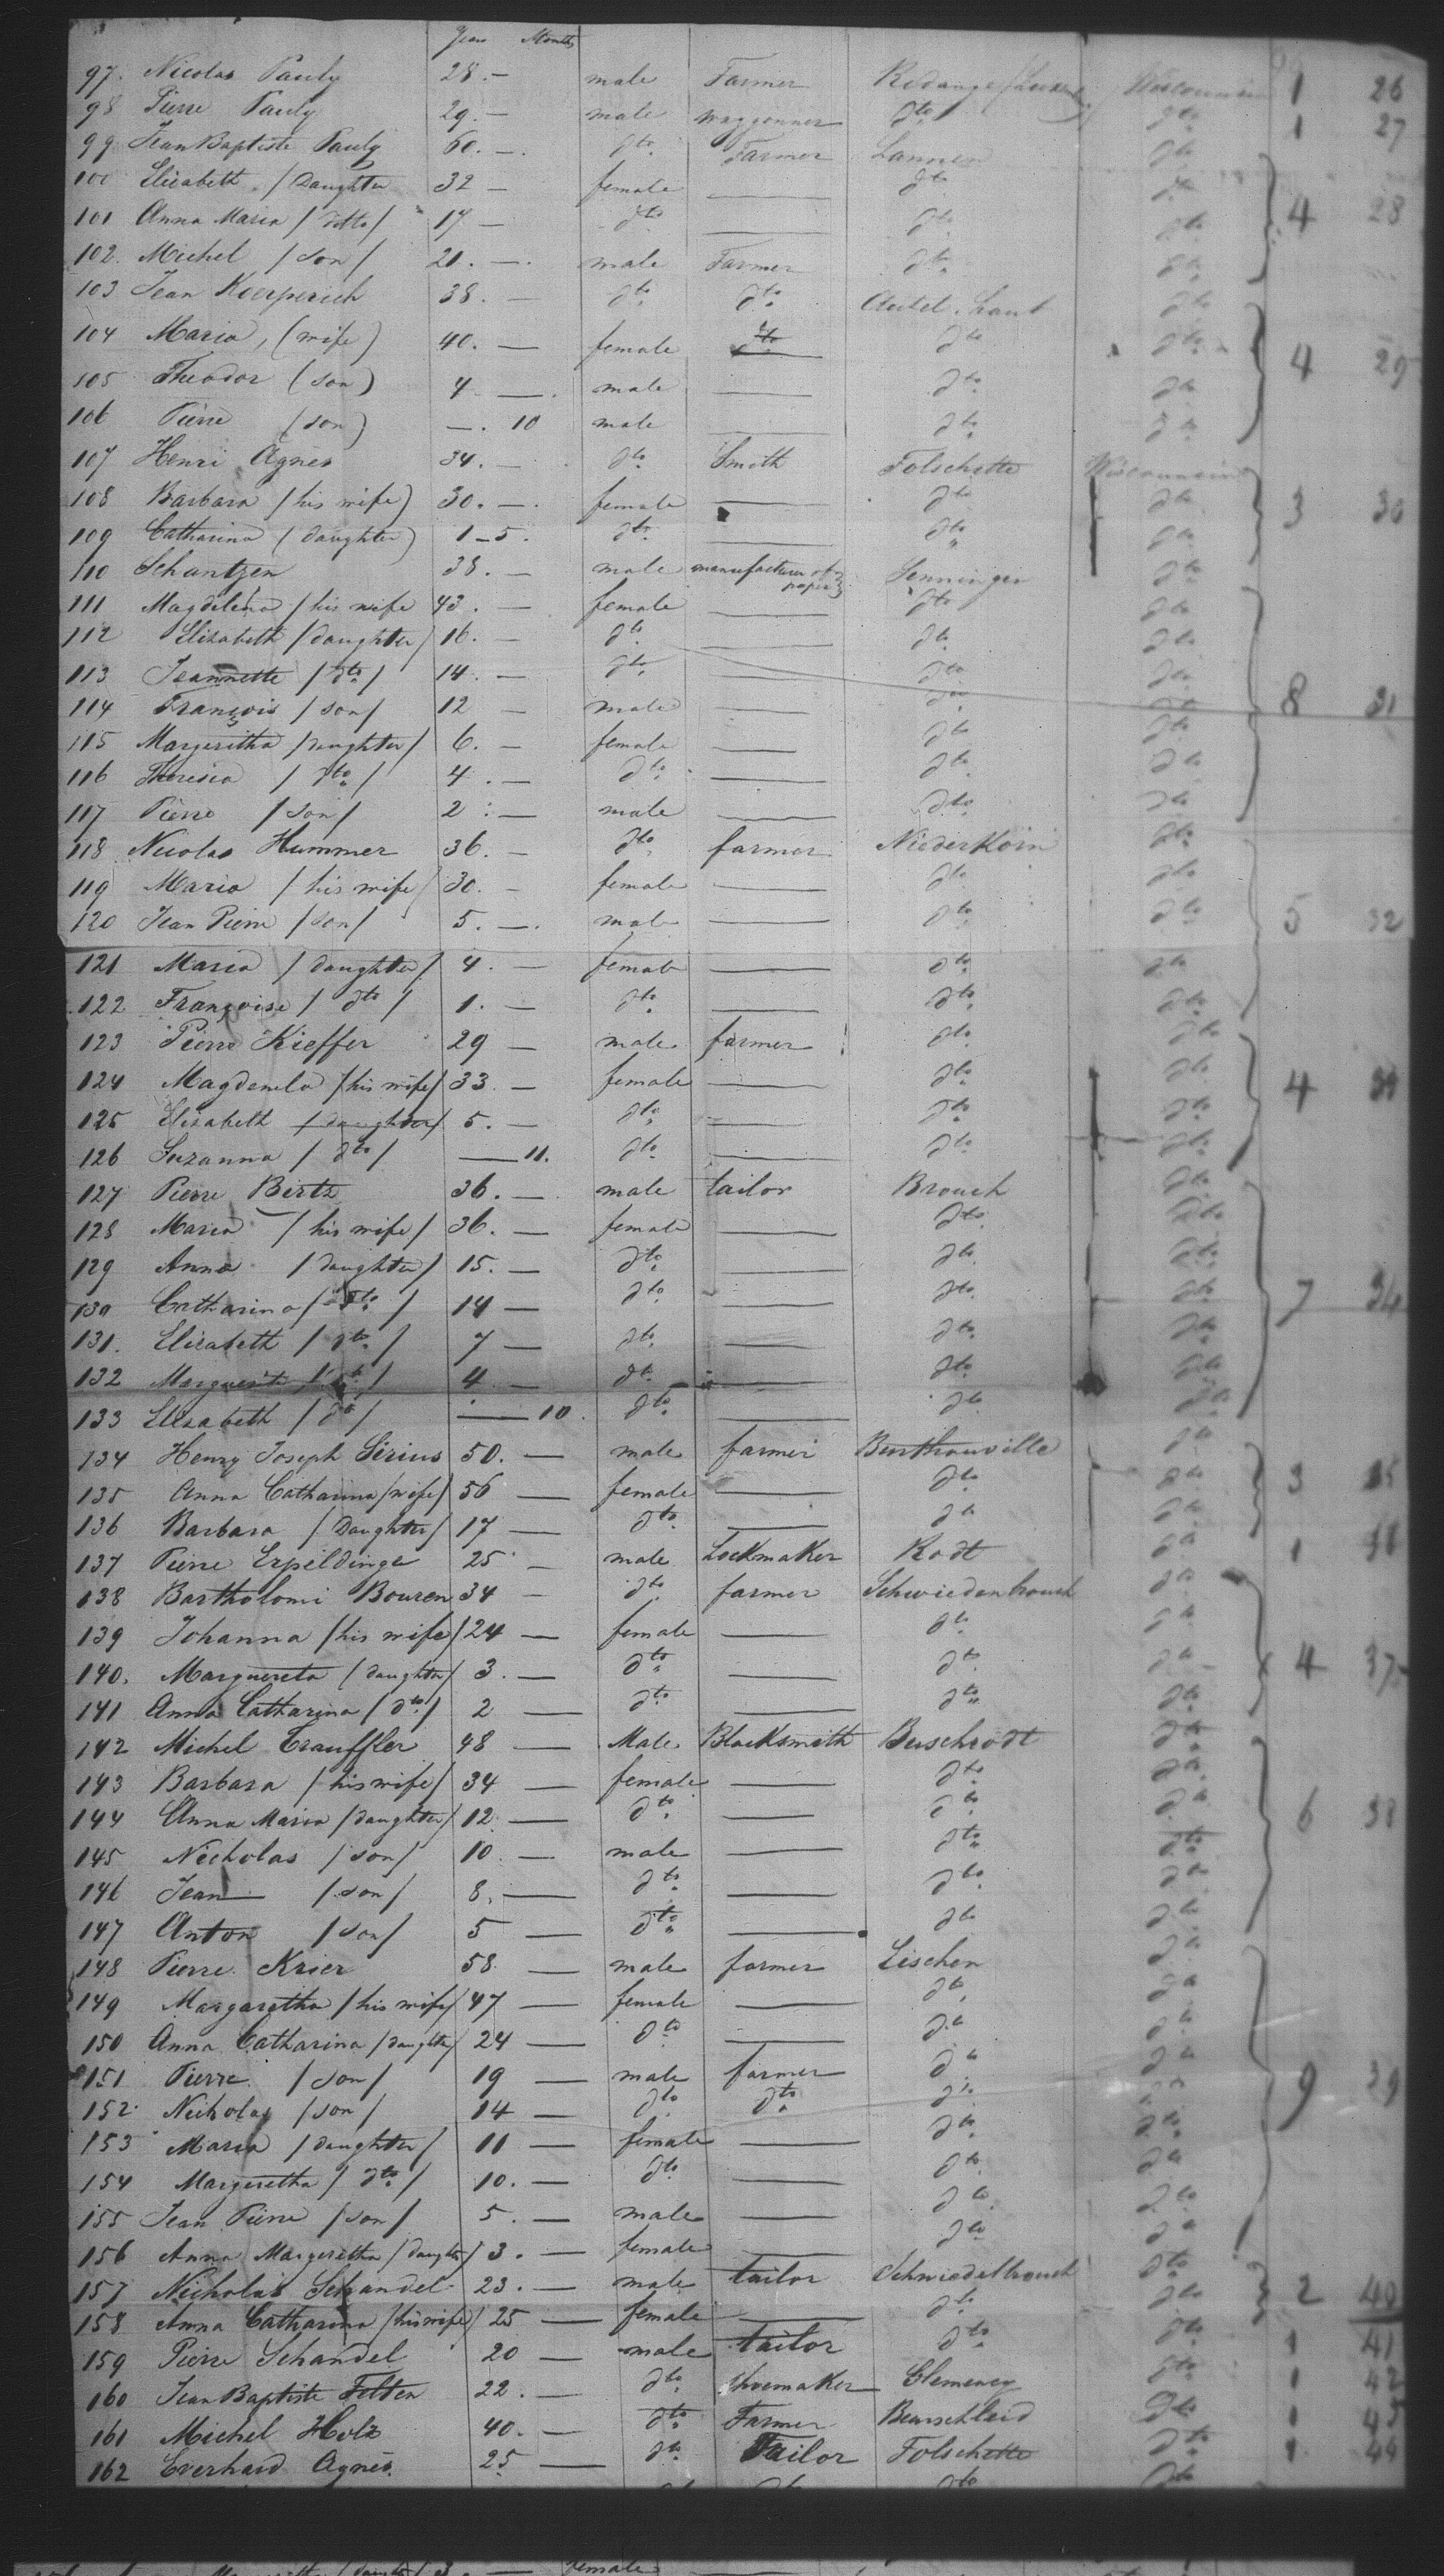 Years Months
97. Nicolas Pauly 28. — male Farmer Redange Wisconsin 1 26
98 Pierre Pauly 29. — male waggonner dto dto 1 27
99 Jean Baptiste Pauly 60. — dto Farmer Lannen dto
100 Elisabeth / Daughter 32 — female — dto dto
101 Anna Maria / ditto / 17 — dto — dto dto 4 28
102. Michel / son / 21. — male Farmer dto dto
103 Jean Koerperich 38. — dto dto Autel. haut dto
104 Maria, (wife) 40. — female dto dto dto
105 Theodor (son) 4 — male — dto dto 4 29
106 Pierre (son) —. 10 male — dto dto
107 Henri Agnes 34. — dto Smith Folschette Wisconnsin
108 Barbara / his wife) 30. — female — dto dto 3 30
109 Catharina (daughter) 1 – 5. dto — dto dto
110 Schantzen 38. — male manufacturer of paper Senninger dto
111 Magdelena / his wife 43. — female — dto dto
112 Elisabeth / daughter / 16. — dto — dto dto
113 Jeannette / dto / 14. — dto — dto dto
114 François / son / 12 — male — dto dto 8 31
115 Margeritha / daughter / 6. — female — dto dto
116 Theresia / dto / 4. — dto — dto dto
117 Pierre / son / 2 : — male — dto dto
118 Nicolas Hummer 36. — dto farmer NiederKorn dto
119 Maria / his wife / 30. — female — dto dto
120 Jean Pierre / son / 5. —. male — dto dto 5 32
121 Maria / daughter / 4. — female — dto dto
122 Françoise / dto / 1. — dto — dto dto
123 Pierre Kieffer 29 — male farmer dto dto
124 Magdenela / his wife / 33. — female — dto dto 4
125 Elisabeth / daughter / 5. — dto — dto dto
126 Suzanna / dto / — 11. dto — dto dto
127 Pierre Birtz 36. — male tailor Brouch dto
128 Maria / his wife / 36. — female — dto dto
129 Anna / daughter / 15. — dto — dto dto
130 Catharina / dto / 14 — dto — dto dto 7 34
131. Elisabeth / dto / 7 — dto — dto dto
132 Marguerite / dto / 4 — dto — dto dto
133 Elisabeth / dto / — 10. dto — dto dto
134 Henry Joseph Sirius 50. — male farmer Burthonville dto
135 Anna Catharina / wife / 56 — female — dto dto 3 35
136 Barbara / Daughter / 17 — dto — dto dto
137 Pierre Erpeldinge 25 — male LockmaKer Rodt dto 1 36
138 Bartholomi Bouren 34 — dto farmer Schwiedenbrouch dto
139 Johanna / his wife / 24 — female — dto dto
140. Marguereta / daughter / 3. — dto — dto dto 4 37
141 Anna Catharina / dto / 2 — dto — dto dto
142 Michel Trauffler 48 — Male BlacKsmith Buschrodt dto
143 Barbara / his wife / 34 — female — dto dto
144 Anna Maria / daughter / 12 — dto — dto dto 6 38
145 Nicholas / son / 10. — male — dto dto
146 Jean / son / 8. — dto — dto dto
147 Anton / son / 5 — dto — dto dto
148 Pierre Krier 58. — male farmer Lischen dto
149 Margaretha / his wife / 47 — female — dto dto
150 Anna Catharina / daughter / 24 — dto — dto dto
151 Pierre / son / 19 — male farmer dto dto
152. Nicholas / son / 14 — dto dto dto dto 9 39
153 Maria / daughter / 11 — female — dto dto
154 Margeretha / dto / 10. — dto — dto dto
155 Jean Pierre / son / 5. — male — dto dto
156 Anna Margeretha / daughter / 3. — female — dto dto
157 Nicholas Schandel 23. — male tailor Schwiedelbrouch dto
158 Anna Catharina / his wife / 25 — female — dto dto 2 40
159 Pierre Schandel 20 — male tailor dto dto 1 41
160 Jean Baptiste Felten 22. — dto shoemaKer Clemency dto 1 42
161 Michel Holz 40. — dto Farmer Beurschleid dto 1
162 Everhard Agnes. 25 — dto Tailor Folschette dto 1 44